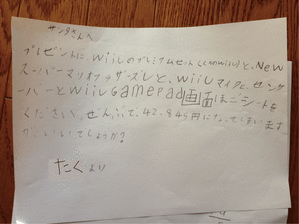 サンタさんへ
プレゼントに、wiiUのプレミアムセット(しろのwiiU)と、New
スーパーマリオブラザーズUと、wiiUマイクと、センサ
ーバーとwiiUGamePad画面ほごシートを
ください。ぜんぶで、42,845円になってしまいます
がいいでしょうか?
たくより